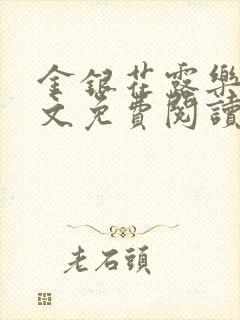 金銀花露樂
文免費閱讀
老石頭